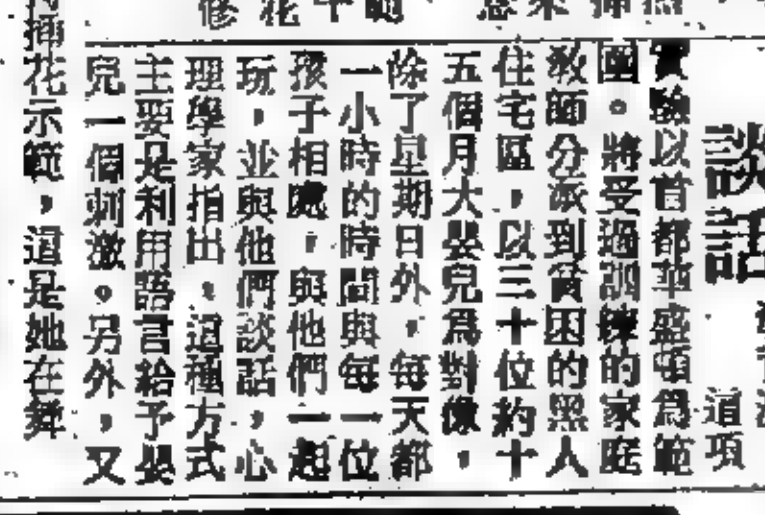 談話
這項
實驗以首都華盛頓爲範
圍。將受過訓練的家庭
教師分派到貧困的黑人
住宅區，以三十位約十
五個月大嬰兒爲對像，
除了星期日外，每天都
一小時的時間與每一位
孩子相處，與他們一起
玩，並與他們談話，心
理學家指出，這種方式
主要是利用語言給予嬰
兒一個刺激。另外，又
插花示範，這是她在舞